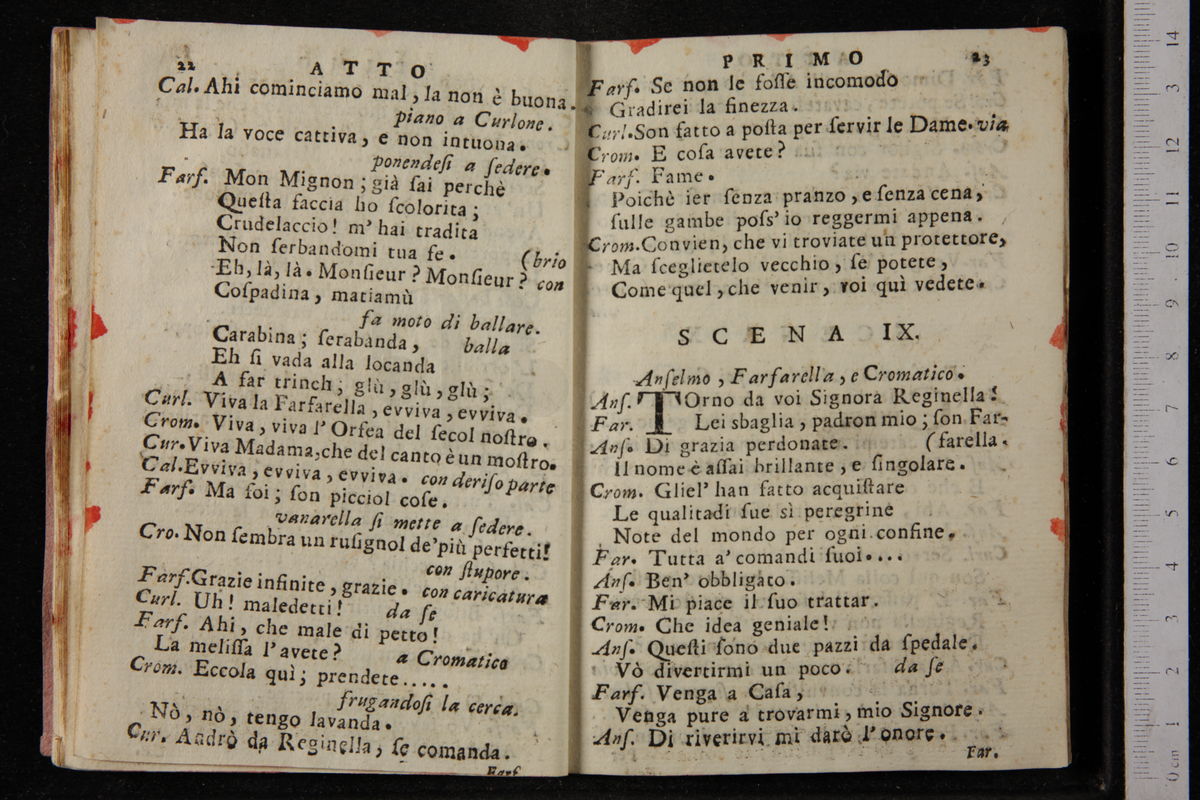 22 ATTO
Cal. Ahi cominciamo mal, la non è buona.
piano a Curlone.
Ha la voce cattiva, e non intuona.
ponendeſi a ſedere.
Farſ. Mon Mignon; già ſai perchè
Queſta faccia ho ſcolorita;
Crudelaccio! m' hai tradita
Non ſerbandomi tua fe.
Eh, là, là. Monſieur? Monſieur? (brio con
Coſpadina, matiamù
fa moto di ballare.
Carabina; ſerabanda, balla
Eh ſi vada alla locanda
A far trinch; glù, glù, glù;
Curl. Viva la Farfarella, evviva, evviva.
Crom. Viva, viva l' Orfea del ſecol noſtro.
Cur. Viva Madama, che del canto è un moſtro.
Cal. Evviva, evviva, evviva. con deriſo parte
Farſ. Ma foi; ſon picciol coſe.
vanarella ſi mette a ſedere.
Cro. Non ſembra un ruſignol de' più perfetti!
con ſtupore.
Farf. Grazie infinite, grazie. con caricatura
Curl. Uh! maledetti! da ſe
Farf. Ahi, che male di petto!
La meliſſa l' avete? a Cromatico
Crom. Eccola quì; prendete.....
frugandoſi la cerca.
Nò, nò, tengo lavanda.
Cur. Andrò da Reginella, ſe comanda.
Farf.
PRIMO 23
Farf. Se non le foſſe incomodo
Gradirei la finezza.
Curl. Son fatto a poſta per ſervir le Dame. via
Crom. E coſa avete?
Farf. Fame.
Poichè ier ſenza pranzo, e ſenza cena,
ſulle gambe poſs' io reggermi appena.
Crom. Convien, che vi troviate un protettore,
Ma ſceglietelo vecchio, ſe potete,
Come quel, che venir, voi quì vedete.
SCENA IX.
Anſelmo, Farfarella, e Cromatico.
Anſ. TOrno da voi Signora Reginella!
Far. Lei sbaglia, padron mio; ſon Far-
Anſ. Di grazia perdonate. (farella.
Il nome è aſſai brillante, e ſingolare.
Crom. Gliel' han fatto acquiſtare
Le qualitadi ſue sì peregrine
Note del mondo per ogni confine.
Far. Tutta a' comandi ſuoi....
Anſ. Ben' obbligato.
Far. Mi piace il ſuo trattar.
Crom. Che idea geniale!
Anſ. Queſti ſono due pazzi da ſpedale.
Vò divertirmi un poco. da ſe
Farſ. Venga a Caſa,
Venga pure a trovarmi, mio Signore.
Anſ. Di riverirvi mi darò l' onore.
Far.
0 cm 1 2 3 4 5 6 7 8 9 10 11 12 13 14